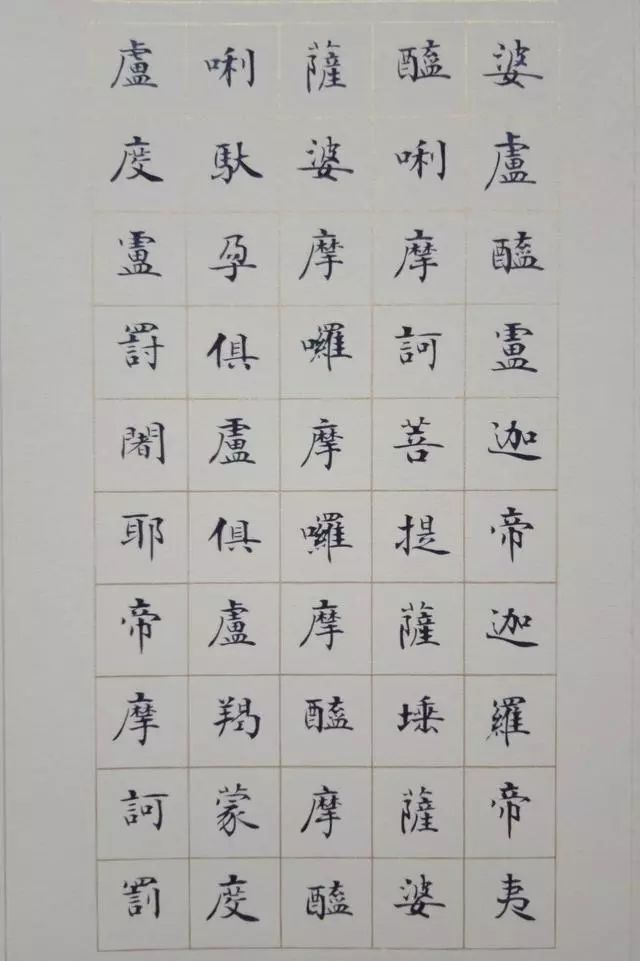 婆盧醯盧迦帝迦羅帝夷
醯唎摩訶菩提薩埵薩婆
薩婆摩囉摩囉摩醯摩醯
唎馱孕俱盧俱盧羯蒙度
盧度盧罸闍耶帝摩訶罰